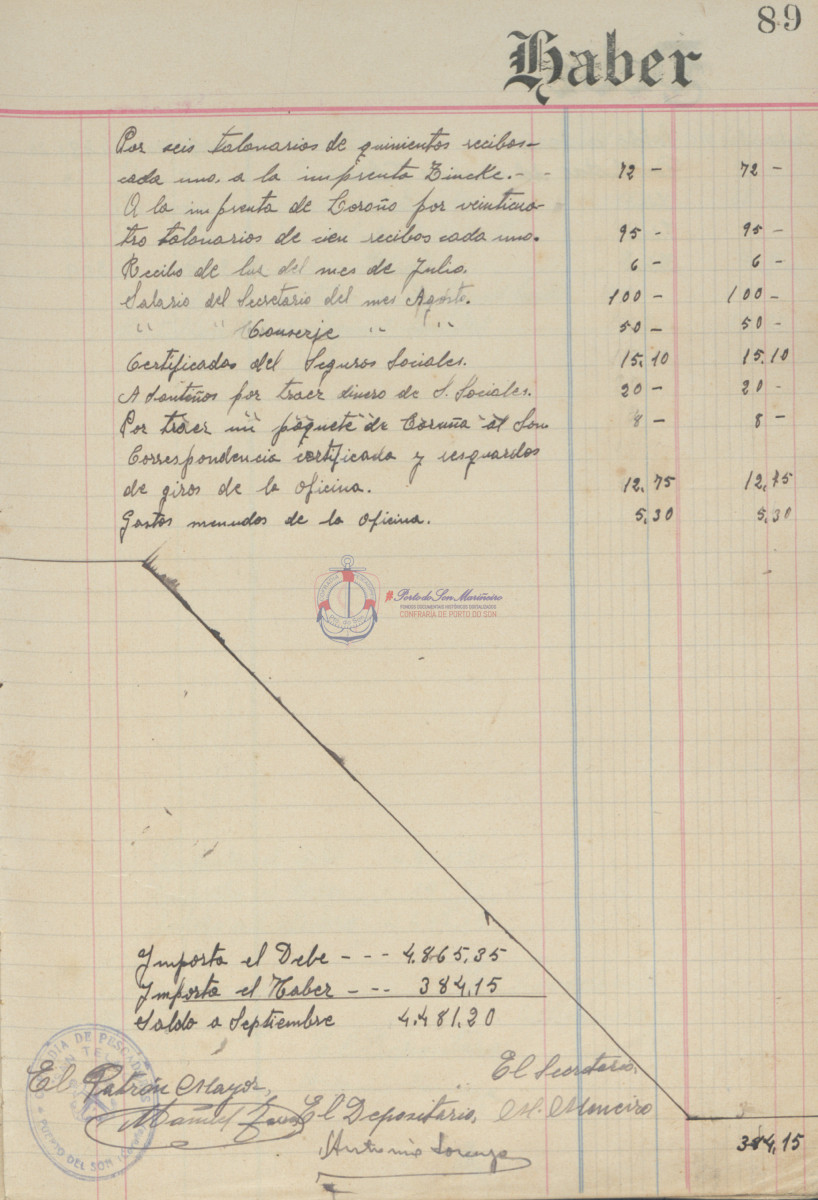 89
Haber
Por seis talonarios de quinientos recibos-
cada uno. a la imprenta Zincke.- - 72 - 72 -
A la imprenta de Coroño por veinticua-
tro talonarios de cien recibos cada uno. 95 - 95 -
Recibo de luz del mes de Julio. 6 - 6 -
Salario del Secretario del mes Agosto. 100 - 100 -
" " Conserje " " 50 - 50 -
Certificados del Seguros Sociales. 15,10 15,10
A Santeños por traer dinero de S. Sociales. 20 - 20 -
Por traer un paquete de Coruña al Son 8 - 8 -
Correspondencia certificada y resguardos
de giros de la oficina. 12,75 12,75
Gastos menudos de la oficina. 5,30 5,30
#Porto do Son Mariñeiro
FONDOS DOCUMENTAIS HISTÓRICOS DIXITALIZADOS
CONFRARÍA DE PORTO DO SON
Importa el Debe - - - 4.865,35
Importa el Haber - - - 384,15
Saldo a Septiembre 4.481,20
El Secretario,
El Patrón Mayor,
Manuel
El Depositario, M. Moneiro
Antonio Lorenzo
384,15
PUERTO DEL SON